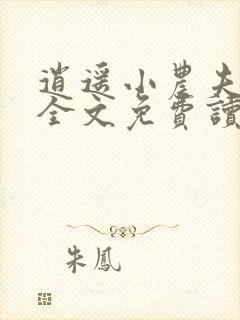 逍遥小農夫
全文免費讀
朱鳳